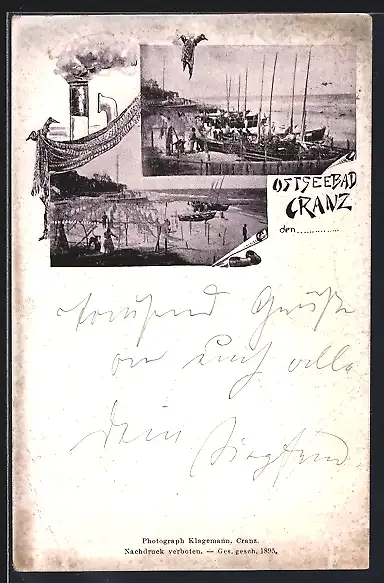 OSTSEEBAD
CRANZ
den..............
tausend Grüße
an euch alle
Dein Siegfried
Photograph Klagemann, Cranz.
Nachdruck verboten. — Ges. gesch. 1895.